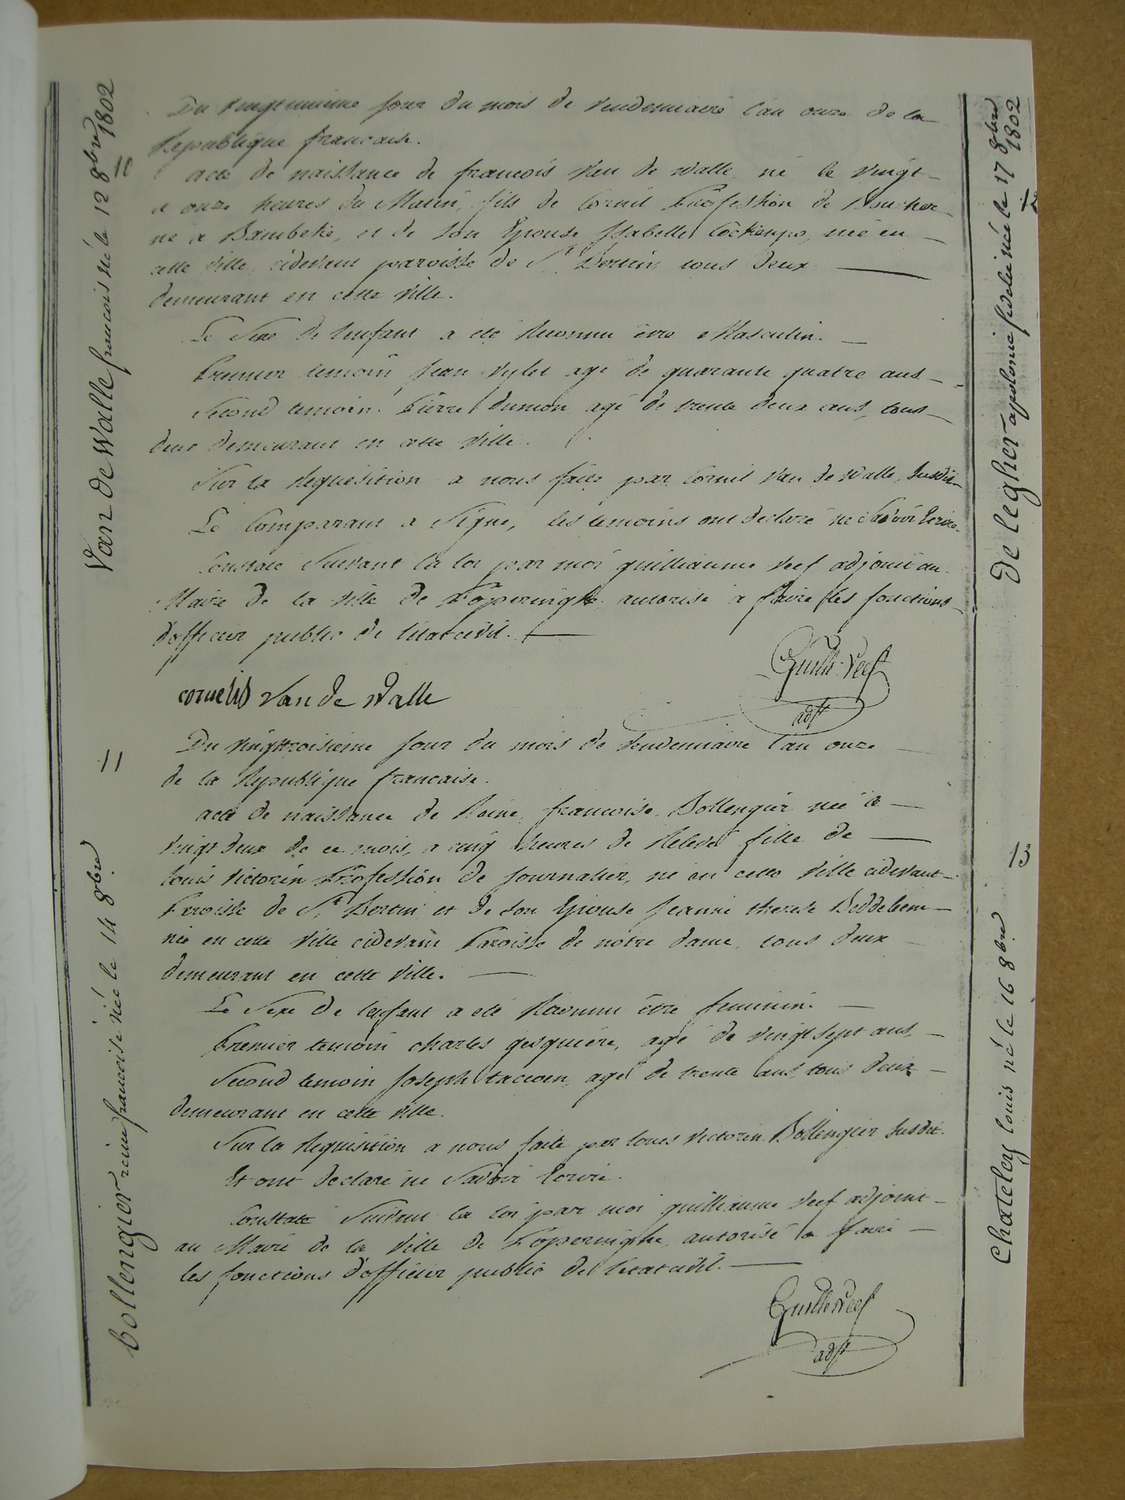 Van de Walle francois né le 12 8bre 1802
10
Du vingtunieme jour du mois de vendemiaire l'an onze de la
Republique francaise.
acte de naissance de francois Van de Walle né le vingt
a onze heures du Matin, fils de Cornil Profession de
né a Bambeke, et de son Epouse Isabelle née en
cette ville cidevant paroisse de St Bertin tous deux
demeurant en cette ville.
Le Sexe de l'enfant a eté Reconnu être Masculin.
Premier temoin Jean agé de quarante quatre ans
Second temoin Pierre Dumon agé de trente deux ans, tous
deux demeurant en cette ville.
Sur la Requisition a nous faite par Cornil Van de Walle Susdit
Le Comparant a Signé, les temoins ont declaré ne Savoir Ecrire
Constaté Suivant la loi par moi guilliaume Veef adjoint au
Maire de la Ville de Poperinghe autorisé a faire les fonctions
d'officier public de l'état civil.
Guille Veef
adjt
cornelis van de Walle
Bollengier reine francoise née le 14 8bre
11
Du vingttroisieme jour du mois de Vendemiaire l'an onze
de la Republique francaise.
acte de naissance de Reine francoise Bollengier née le
vingt deux de ce mois, a cinq heures de Relevé fille de
Louis Victorin Profession de journalier, né en cette Ville cidevant
Paroisse de St Bertin et de son Epouse Jeanne therese
née en cette Ville cidevant Paroisse de notre dame, tous deux
demeurant en cette ville.
Le Sexe de l'enfant a eté Reconnu être feminin.
Premier temoin charles gesquiere, agé de vingtsept ans,
Second temoin Joseph agé de trente ans tous deux
demeurant en cette ville.
Sur la Requisition a nous faite par Louis Victorin Bollengier Susdit
Et ont declaré ne Savoir Ecrire.
Constaté Suivant la loi par moi guilliaume Veef adjoint
au Maire de la Ville de Poperinghe autorisé a faire
les fonctions d'officier public de l'état civil.
Guille Veef
adjt
de legher apolonie fidelie née le 17 8bre 1802
12
13
Chateley louis né le 16 8bre